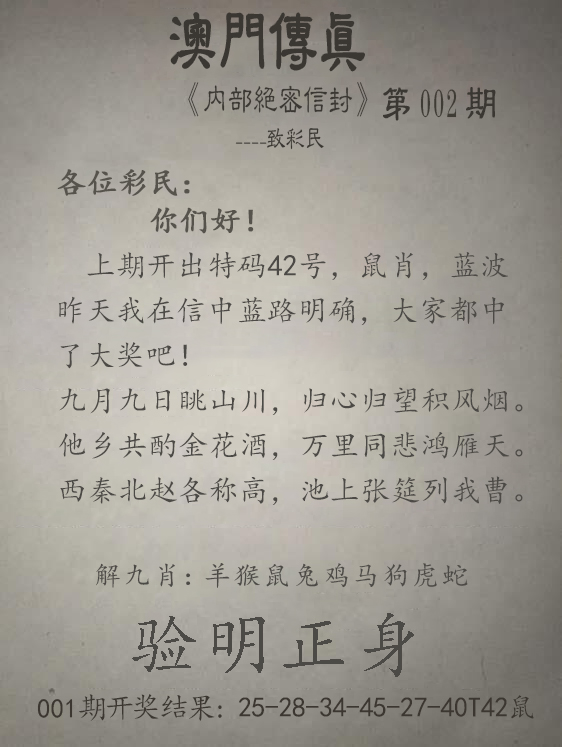 澳門傳真
《内部絕密信封》第002期
----致彩民
各位彩民：
你们好！
上期开出特码42号，鼠肖，蓝波
昨天我在信中蓝路明确，大家都中
了大奖吧！
九月九日眺山川，归心归望积风烟。
他乡共酌金花酒，万里同悲鸿雁天。
西秦北赵各称高，池上张筵列我曹。
解九肖：羊猴鼠兔鸡马狗虎蛇
验明正身
001期开奖结果：25-28-34-45-27-40T42鼠